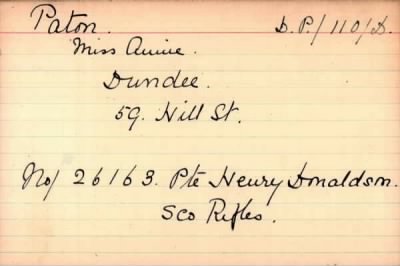 Paton. D.P./110/D.
Miss Annie.
Dundee.
59. Hill St.
No/ 26163. Pte Henry Donaldson.
Sco Rifles.